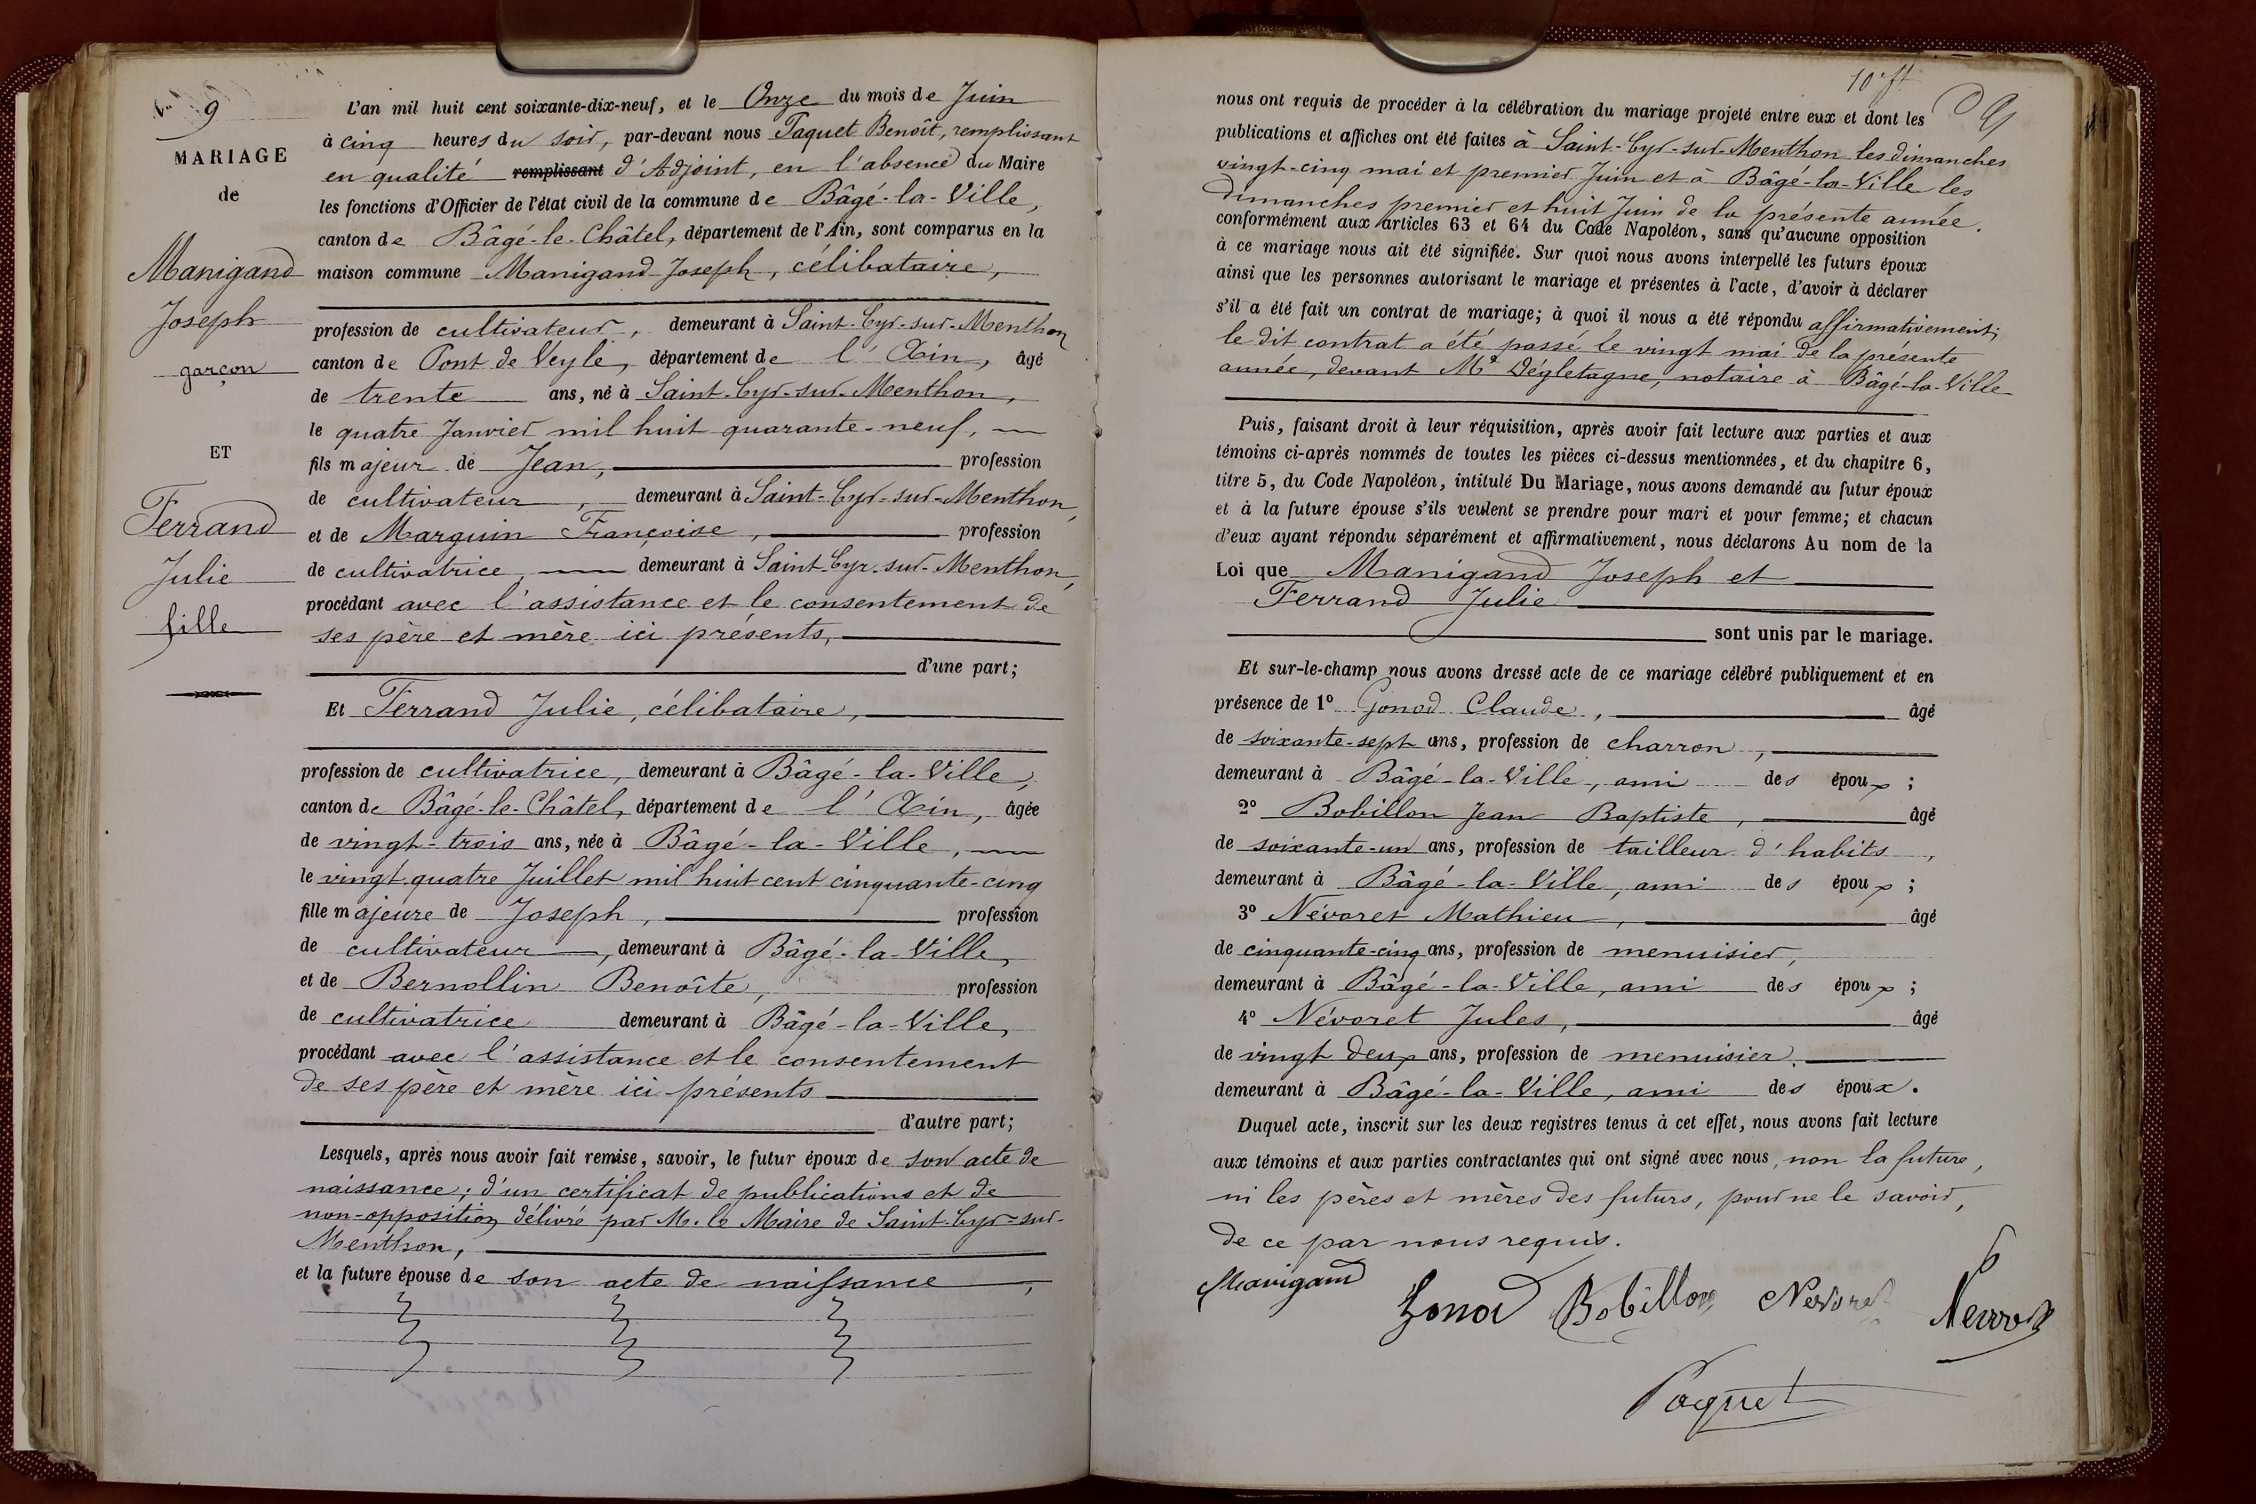 9
MARIAGE
de
Manigand
Joseph
garçon
ET
Ferrand
Julie
fille
L'an mil huit cent soixante-dix-neuf, et le Onze du mois de Juin
à cinq heures du soir, par-devant nous Paquet Benoît, remplissant
en qualité remplissant d'Adjoint, en l'absence du Maire
les fonctions d'Officier de l'état civil de la commune de Bâgé-la-Ville,
canton de Bâgé-le-Châtel, département de l'Ain, sont comparus en la
maison commune Manigand Joseph, célibataire,
profession de cultivateur, demeurant à Saint-Cyr-sur-Menthon
canton de Pont de Veyle, département de l'Ain, âgé
de trente ans, né à Saint-Cyr-sur-Menthon,
le quatre Janvier mil huit quarante-neuf,
fils majeur de Jean, profession
de cultivateur, demeurant à Saint-Cyr-sur-Menthon,
et de Marguin Françoise, profession
de cultivatrice, demeurant à Saint-Cyr-sur-Menthon,
procédant avec l'assistance et le consentement de
ses père et mère ici présents,
d'une part;
Et Ferrand Julie, célibataire,
profession de cultivatrice, demeurant à Bâgé-la-Ville,
canton de Bâgé-le-Châtel, département de l'Ain, âgée
de vingt-trois ans, née à Bâgé-la-Ville,
le vingt-quatre Juillet mil huit cent cinquante-cinq
fille majeure de Joseph, profession
de cultivateur, demeurant à Bâgé-la-Ville,
et de Bernollin Benoîte, profession
de cultivatrice demeurant à Bâgé-la-Ville,
procédant avec l'assistance et le consentement
de ses père et mère ici présents
d'autre part;
Lesquels, après nous avoir fait remise, savoir, le futur époux de son acte de
naissance; d'un certificat de publications et de
non-opposition délivré par M. le Maire de Saint-Cyr-sur-
Menthon,
et la future épouse de son acte de naissance,
nous ont requis de procéder à la célébration du mariage projeté entre eux et dont les
publications et affiches ont été faites à Saint-Cyr-sur-Menthon les dimanches
vingt-cinq mai et premier Juin et à Bâgé-la-Ville les
dimanches premier et huit Juin de la présente année.
conformément aux articles 63 et 64 du Code Napoléon, sans qu'aucune opposition
à ce mariage nous ait été signifiée. Sur quoi nous avons interpellé les futurs époux
ainsi que les personnes autorisant le mariage et présentes à l'acte, d'avoir à déclarer
s'il a été fait un contrat de mariage; à quoi il nous a été répondu affirmativement;
le dit contrat a été passé le vingt mai de la présente
année, devant Me Dégletagne, notaire à Bâgé-la-Ville
Puis, faisant droit à leur réquisition, après avoir fait lecture aux parties et aux
témoins ci-après nommés de toutes les pièces ci-dessus mentionnées, et du chapitre 6,
titre 5, du Code Napoléon, intitulé Du Mariage, nous avons demandé au futur époux
et à la future épouse s'ils veulent se prendre pour mari et pour femme; et chacun
d'eux ayant répondu séparément et affirmativement, nous déclarons Au nom de la
Loi que Manigand Joseph et
Ferrand Julie
sont unis par le mariage.
Et sur-le-champ nous avons dressé acte de ce mariage célébré publiquement et en
présence de 1° Gonod Claude, âgé
de soixante-sept ans, profession de charron,
demeurant à Bâgé-la-Ville, ami des époux;
2° Bobillon Jean Baptiste, âgé
de soixante-un ans, profession de tailleur d'habits,
demeurant à Bâgé-la-Ville, ami des époux;
3° Névoret Mathieu, âgé
de cinquante-cinq ans, profession de menuisier,
demeurant à Bâgé-la-Ville, ami des époux;
4° Névoret Jules, âgé
de vingt deux ans, profession de menuisier.
demeurant à Bâgé-la-Ville, ami des époux.
Duquel acte, inscrit sur les deux registres tenus à cet effet, nous avons fait lecture
aux témoins et aux parties contractantes qui ont signé avec nous, non la future,
ni les pères et mères des futurs, pour ne le savoir,
de ce par nous requis.
Manigand Gonod Bobillon Nevoret
Paquet